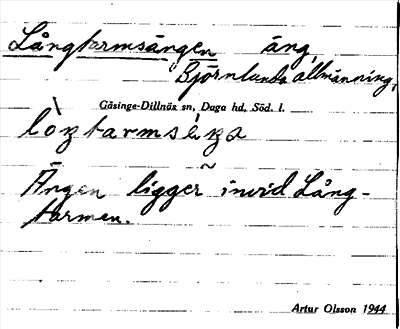 Långtarmsängen äng,
Björnlunda allmänning,
Gåsinge-Dillnäs sn, Daga hd, Söd. l.
Ängen ligger invid Lång-
tarmen.
Artur Olsson 1944